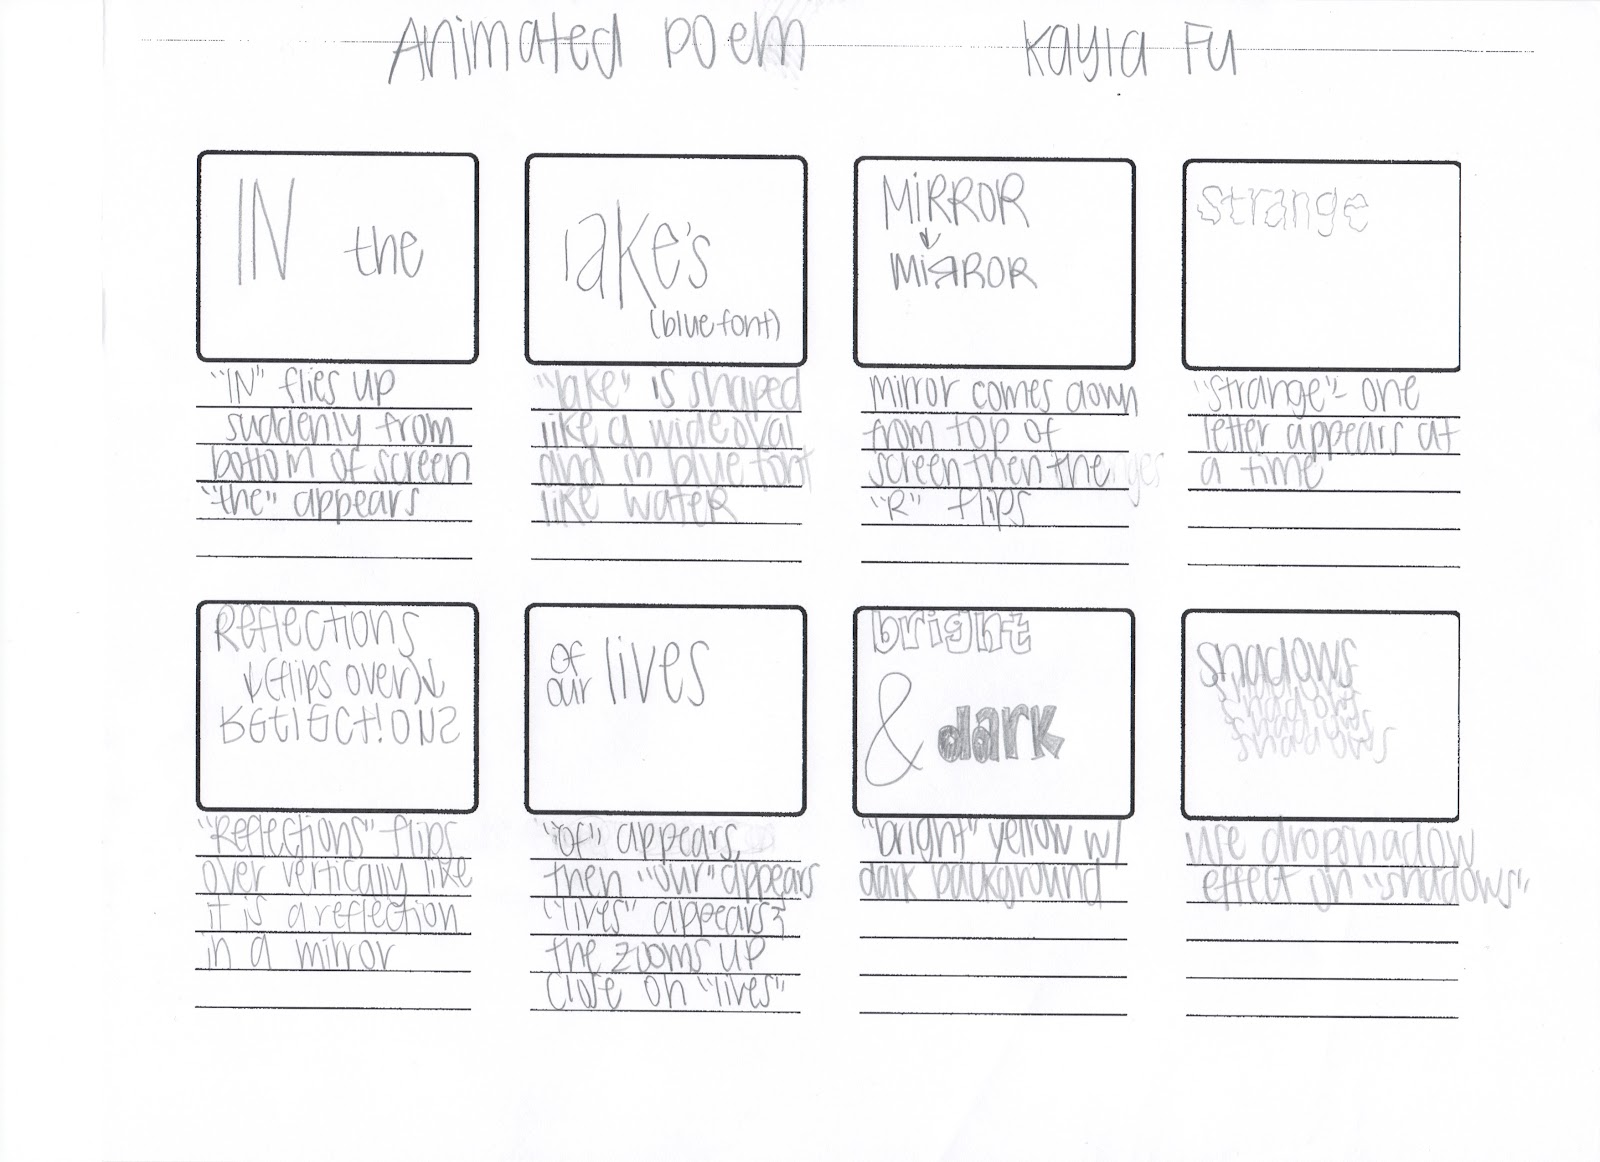 Animated poem Kayla Fu
IN the
lake's
(blue font)
MiRROR
MiЯROR
strange
"IN" flies up
suddenly from
bottom of screen
"the" appears
"lake" is shaped
like a wide oval
and in blue font
like water
mirror comes down
from top of
screen then the
"R" flips
"strange" - one
letter appears at
a time
Reflections
(flips over)
Reflections
of
our lives
bright
& dark
shadows
shadows
shadows
shadows
"Reflections" flips
over vertically like
it is a reflection
in a mirror
"of" appears,
then "our" appears
"lives" appears &
the zooms up
close on "lives"
"bright" yellow w/
dark background
use dropshadow
effect in "shadows"